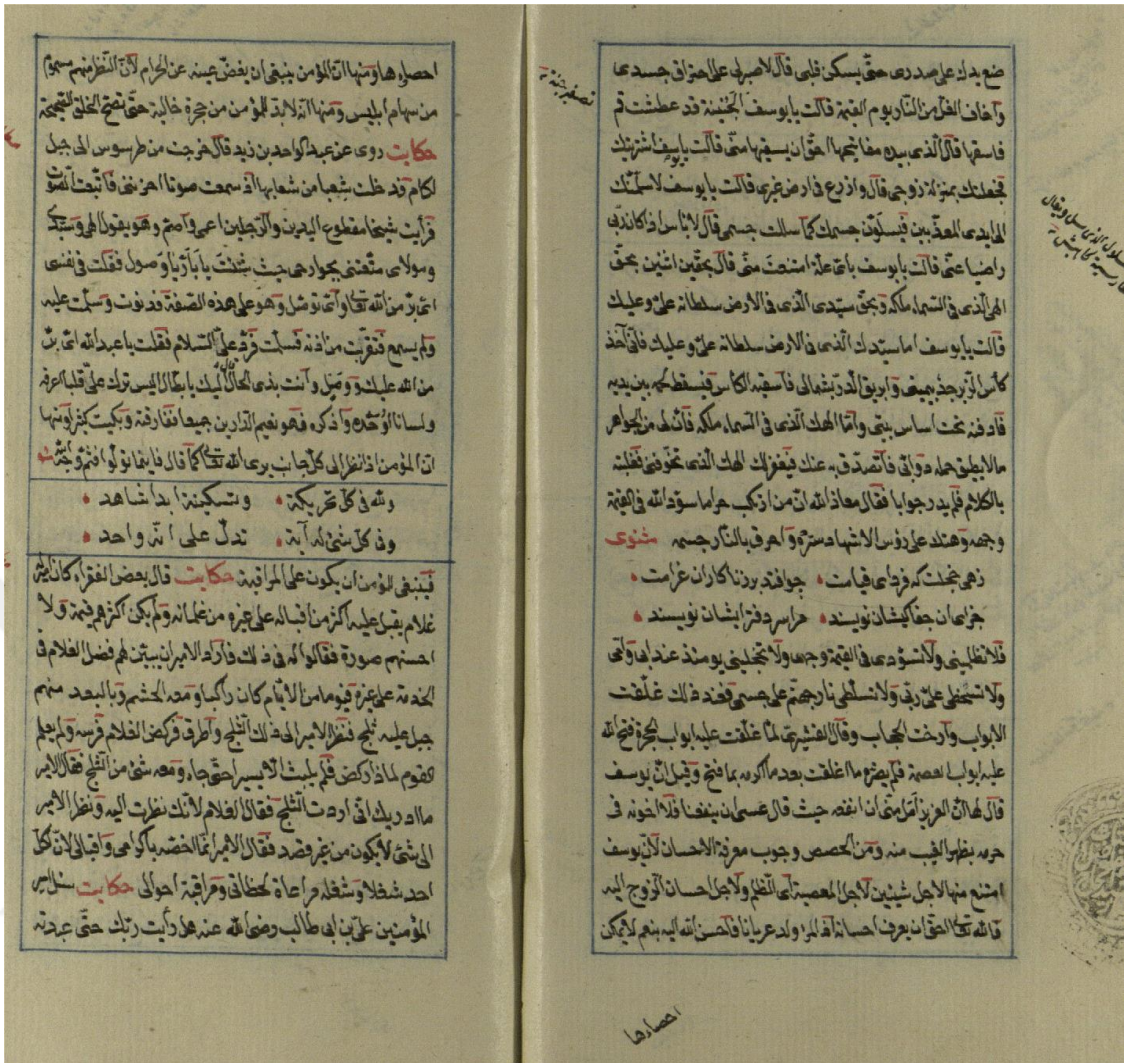 ضع يدك على صدرى حتى يسكن قلبى قال لا صبر لى على احتراق جسدى
واخاف الغل من النار يوم القيمة قالت يا يوسف الجنينة قد عطشت قم
فاسقها قال الذى بيده مفاتيحها احق ان يسقيها منى قالت يا يوسف اشتريتك
فجعلتك بمنزلة زوجى قال وازرع فى ارض غيرى قالت يا يوسف لاسلمنك
الى ايدى المعذبين فيسلون جسمك كما سللت جسمى قال لا باس اذا كان ربى
راضيا عنى قالت يا يوسف باى علة امتنعت منى قال بحقين اثنين بحق
الهى الذى فى السماء ملكه وبحق سيدى الذى فى الارض سلطانه على وعليك
قالت يا يوسف اما سيدك الذى فى الارض سلطانه على وعليك فانى آخذ
كأس الزبرجد بيمينى وابريق الدر بشمالى فاسقيه الكاس فيسقط لحمه بين يديه
فادفنه تحت اساس بيتى واما الهك الذى فى السماء ملكه فان لى من الجواهر
مالا يطيق حمله دوابى فاتصدق به عنك فيغفر لك الهك الذى تخوفنى فغلبته
بالكلام فلم يدر جوابا فقال معاذ الله ان من ارتكب حراما سود الله فى القيمة
وجهه وهتك على رؤس الاشهاد ستره واحرق بالنار جسمه مثنوى
زهى خجلت كه فرداى قيامت چو افتد بر زناكاران غرامت
جزاى آن جفا كيشان نويسند سراسر دفتر ايشان نويسند
فلا تظلمينى ولا تسودى فى القيمة وجهى ولا تخجلينى يومئذ عند ابى وامى
ولا تسخطى على ربى ولا تسلطى نار جهنم على جسمى فعند ذلك غلقت
الابواب وارخت الحجاب وقال القشيرى لما غلقت عليه ابواب الحجرة فتح الله
عليه ابواب العصمة فلم يضره ما اغلقت بعد ما اكرمه بما فتح وقيل ان يوسف
قال لها ان العزيز امل منى ان انفعه حيث قال عسى ان ينفعنا فلا اخونه فى
حرمه بظهر الغيب منه ومن الحصص وجوب معرفة الاحسان لان يوسف
امتنع منها لاجل شيئين لاجل المعصية اى الظلم ولاجل احسان الزوج اليه
فالله تعالى احق ان يعرف احسانه اذ المرء ولد عريانا فاحسن الله اليه بنعم لا يمكن
احصاءها
تصغير جنة
احصاءها ومنها ان المؤمن ينبغى ان يغض عينه عن الحرام لان النظر سهم مسموم
من سهام ابليس ومنها انه لابد للمؤمن من حجرة خالية حتى تفتح الخلق القبيحة
حكايت روى عن عبد الواحد بن زيد قال خرجت من طرسوس الى جبل
لكام فدخلت شعبا من شعابها اذ سمعت صوتا احزننى فاتبعت الصوت
فرأيت شيخا مقطوع اليدين والرجلين اعمى واصم وهو يقول الهى وسيدى
ومولاى متعتنى بجوارحى حيث شئت يا بار يا وصول فقلت فى نفسى
اى بر من الله تعالى واى توصل وهو على هذه الصفة فدنوت وسلمت عليه
ولم يسمع فتقربت من اذنه فسلمت فرد على السلام فقلت يا عبد الله اى بر
من الله عليك ووصل وانت بذى الحال قال اليك يا بطال اليس ترك على قلبا اعرفه
ولسانا اوحده واذكره فهو نعيم الدارين جميعا ففارقته وبكيت كثيرا ومنها
ان المؤمن اذا نظر الى كل جانب يرى الله تعالى كما قال فاينما تولوا فثم وجه الله
ولله فى كل تحريكة وتسكينة ابدا شاهد
وفى كل شئ له آية تدل على انه واحد
فينبغى للمؤمن ان يكون على المراقبة حكايت قال بعض الفقراء كان لامير
غلام يقبل عليه اكثر من اقباله على غيره من غلمانه ولم يكن اكثرهم قيمة ولا
احسنهم صورة فقالوا له فى ذلك فاراد الامير ان يبين لهم فضل الغلام فى
الخدمة على غيره فيوما من الايام كان راكبا ومعه الحشم وبالبعد منهم
جبل عليه ثلج فنظر الامير الى ذلك الثلج واطرق فركض الغلام فرسه ولم يعلم
القوم لماذا ركض فلم يلبث الا يسيرا حتى جاء ومعه شئ من الثلج فقال الامير
ما ادريك انى اردت الثلج فقال الغلام لانك نظرت اليه ونظر الامير
الى شئ لا يكون من غير قصد فقال الامير انما اخصه باكرامى واقبالى لان لكل
احد شغلا وشغله مراعاة لحظاتى ومراقبة احوالى حكايت سئل امير
المؤمنين على بن ابى طالب رضى الله عنه هل رأيت ربك حتى عبدته